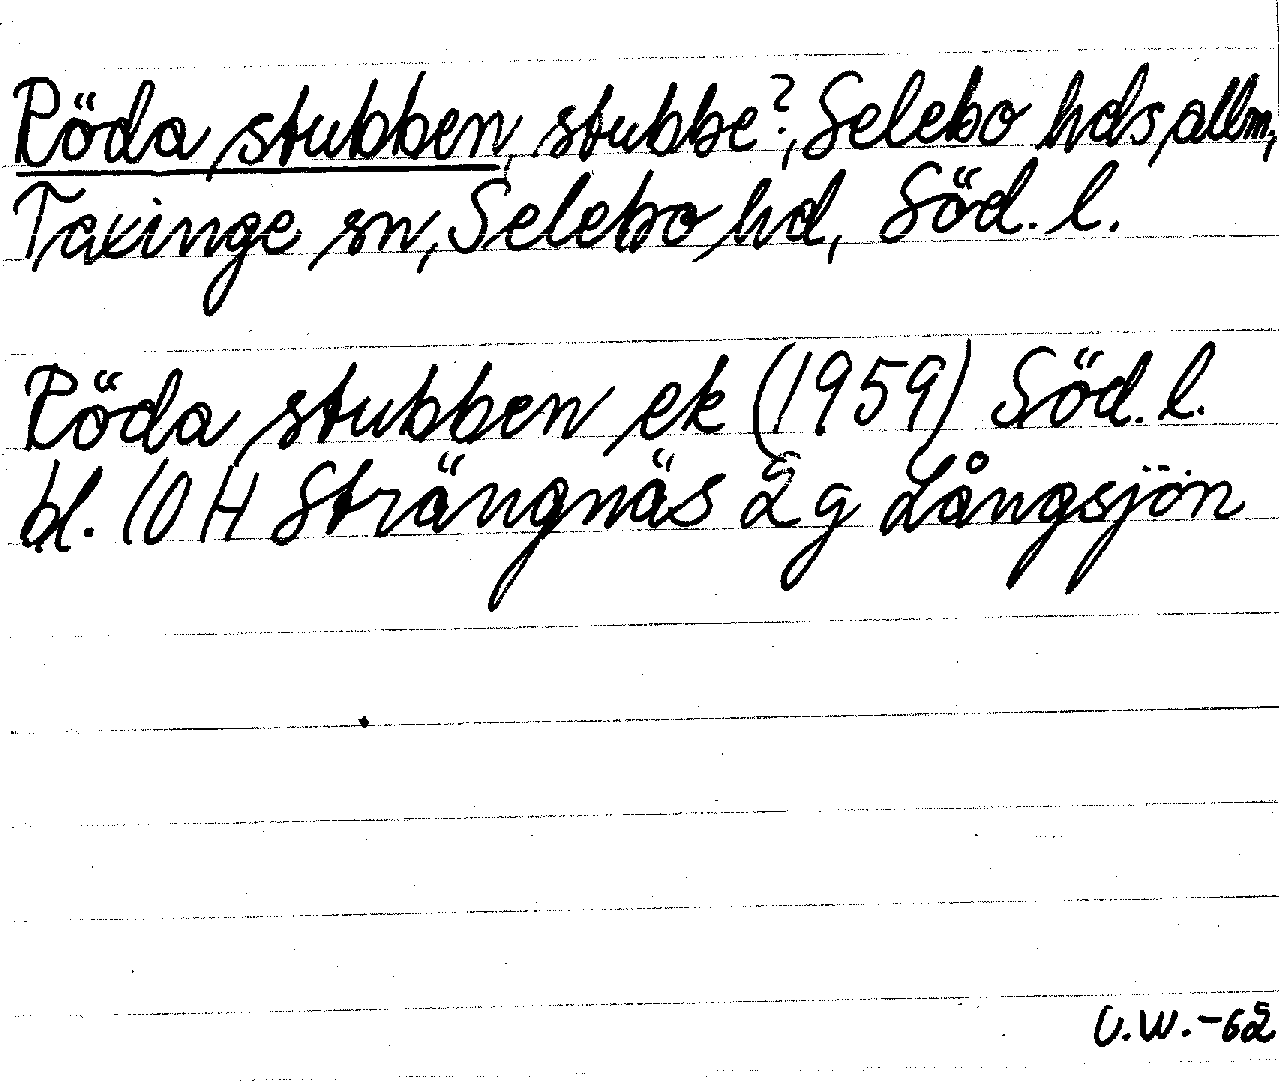 Röda stubben, stubbe?, Selebo hds allm,
Taxinge sn, Selebo hd, Söd. l.
Röda stubben ek (1959) Söd. l.
bl. 10 H Strängnäs 2 g Långsjön
O.W.-62